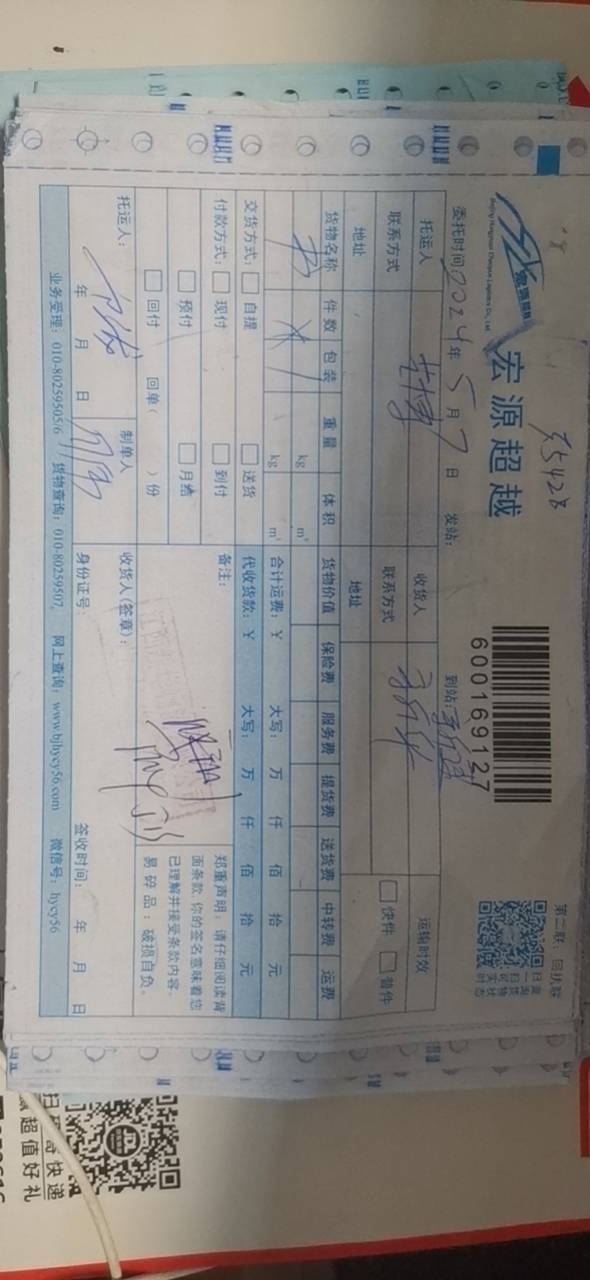 宏源超越
35428
600169127
第二联：回执联
委托时间 2024年5月7日
发站：
到站：
托运人
收货人
运输时效
联系方式
联系方式
快件
普件
地址
地址
货物名称
件数
包装
重量
体积
货物价值
保险费
服务费
提货费
送货费
中转费
运费
书
kg
m³
kg
m³
合计运费：￥
大写：
万
仟
佰
拾
元
交货方式：
自提
送货
代收货款：￥
大写：
万
仟
佰
拾
元
付款方式：
现付
到付
预付
月结
回付
回单（ ）份
备注：
郑重声明：请仔细阅读背
面条款，你的签名意味着您
已理解并接受条款内容。
易碎品：破损自负。
托运人：
年 月 日
制单人
收货人(签章)：
身份证号：
签收时间： 年 月 日
业务受理：010-80259505/6
货物查询：010-80259507
网上查询：www.bjhycy56.com
微信号：hycy56
超值好礼